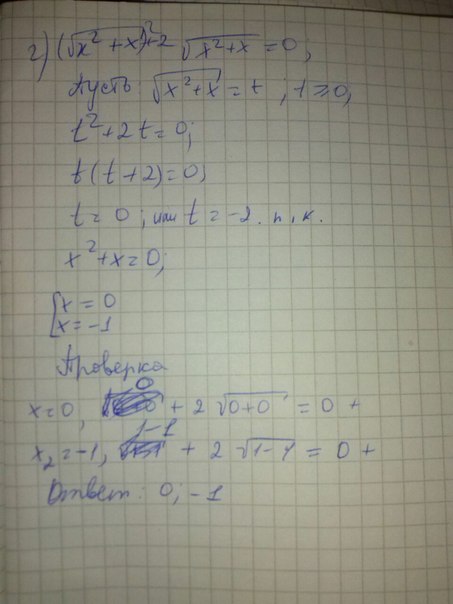 г) (√(x²+x))²+2 √(x²+x) = 0;
Пусть √(x²+x) = t ; t ≥ 0;
t²+2t=0;
t(t+2)=0;
t=0; или t=-2 п.к.
x²+x=0;
[x=0
x=-1
Проверка
x=0, 0 + 2 √(0+0) = 0 +
x₂=-1, 1-1 + 2 √(1-1) = 0 +
Ответ: 0; -1